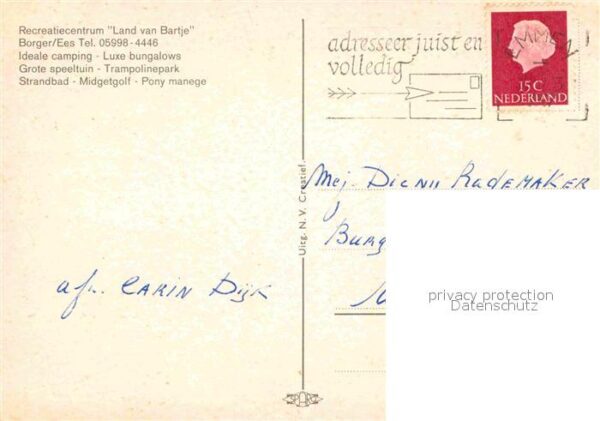 Recreatiecentrum "Land van Bartje"
Borger/Ees Tel. 05998-4446
Ideale camping - Luxe bungalows
Grote speeltuin - Trampolinepark
Strandbad - Midgetgolf - Pony manege
adresseer juist en
volledig
EMMEN
15C
NEDERLAND
Uitg. N.V. Creatief.
Mej. Dienn Rademaker
Burg
afz. CARIN Dijk
privacy protection
Datenschutz
SPARO